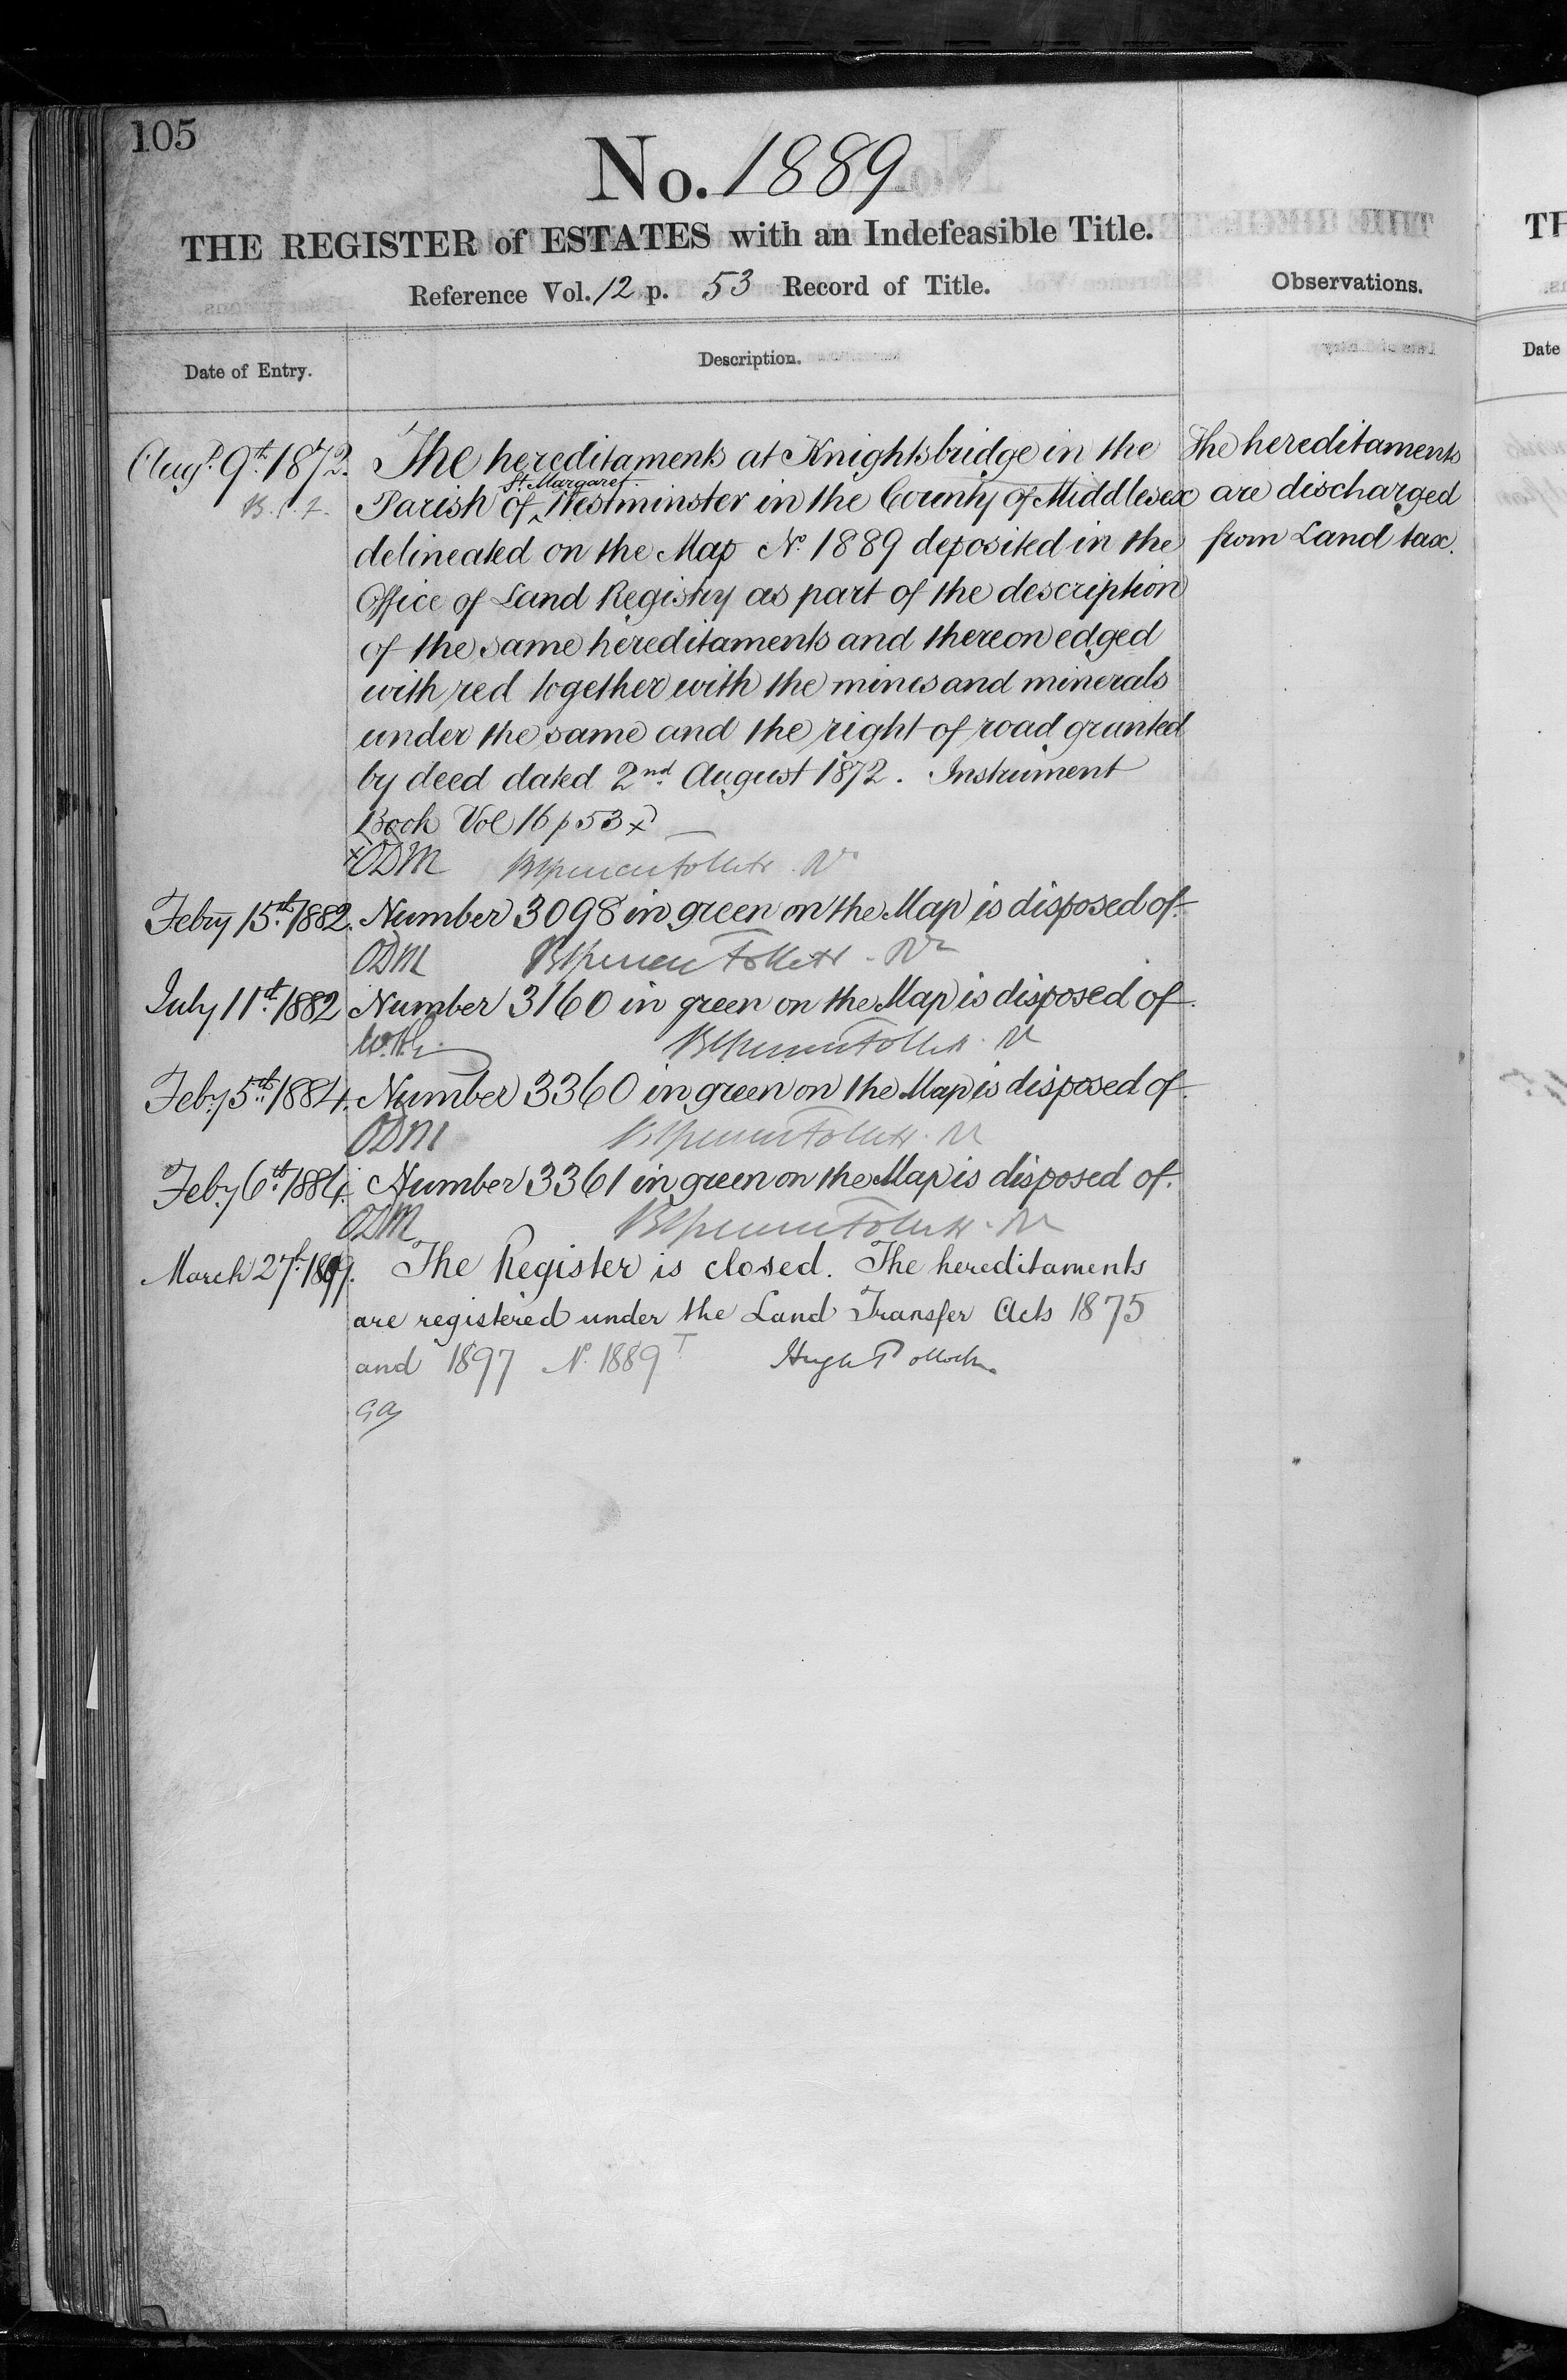 105
No. 1889
THE REGISTER of ESTATES with an Indefeasible Title.
Reference Vol. 12 p. 53 Record of Title.
Observations.
Date of Entry.
Description.
Augt. 9th. 1872.
The hereditaments at Knightsbridge in the
St. Margaret
Parish of ^ Westminster in the County of Middlesex
delineated on the Map No. 1889 deposited in the
Office of Land Registry as part of the description
of the same hereditaments and thereon edged
with red together with the mines and minerals
under the same and the right of road granted
by deed dated 2nd. August 1872. Instrument
Book Vol 16 p 53 x
The hereditaments
are discharged
from Land tax.
x ODM
Febry 15th. 1882. Number 3098 in green on the Map is disposed of.
ODM
July 11th. 1882 Number 3160 in green on the Map is disposed of.
Feby. 5th. 1884. Number 3360 in green on the Map is disposed of.
ODM
Feby. 6th. 1884. Number 3361 in green on the Map is disposed of.
ODM
March 27th. 1899. The Register is closed. The hereditaments
are registered under the Land Transfer Acts 1875
and 1897 No. 1889T Hugh Pollock
TH
Date